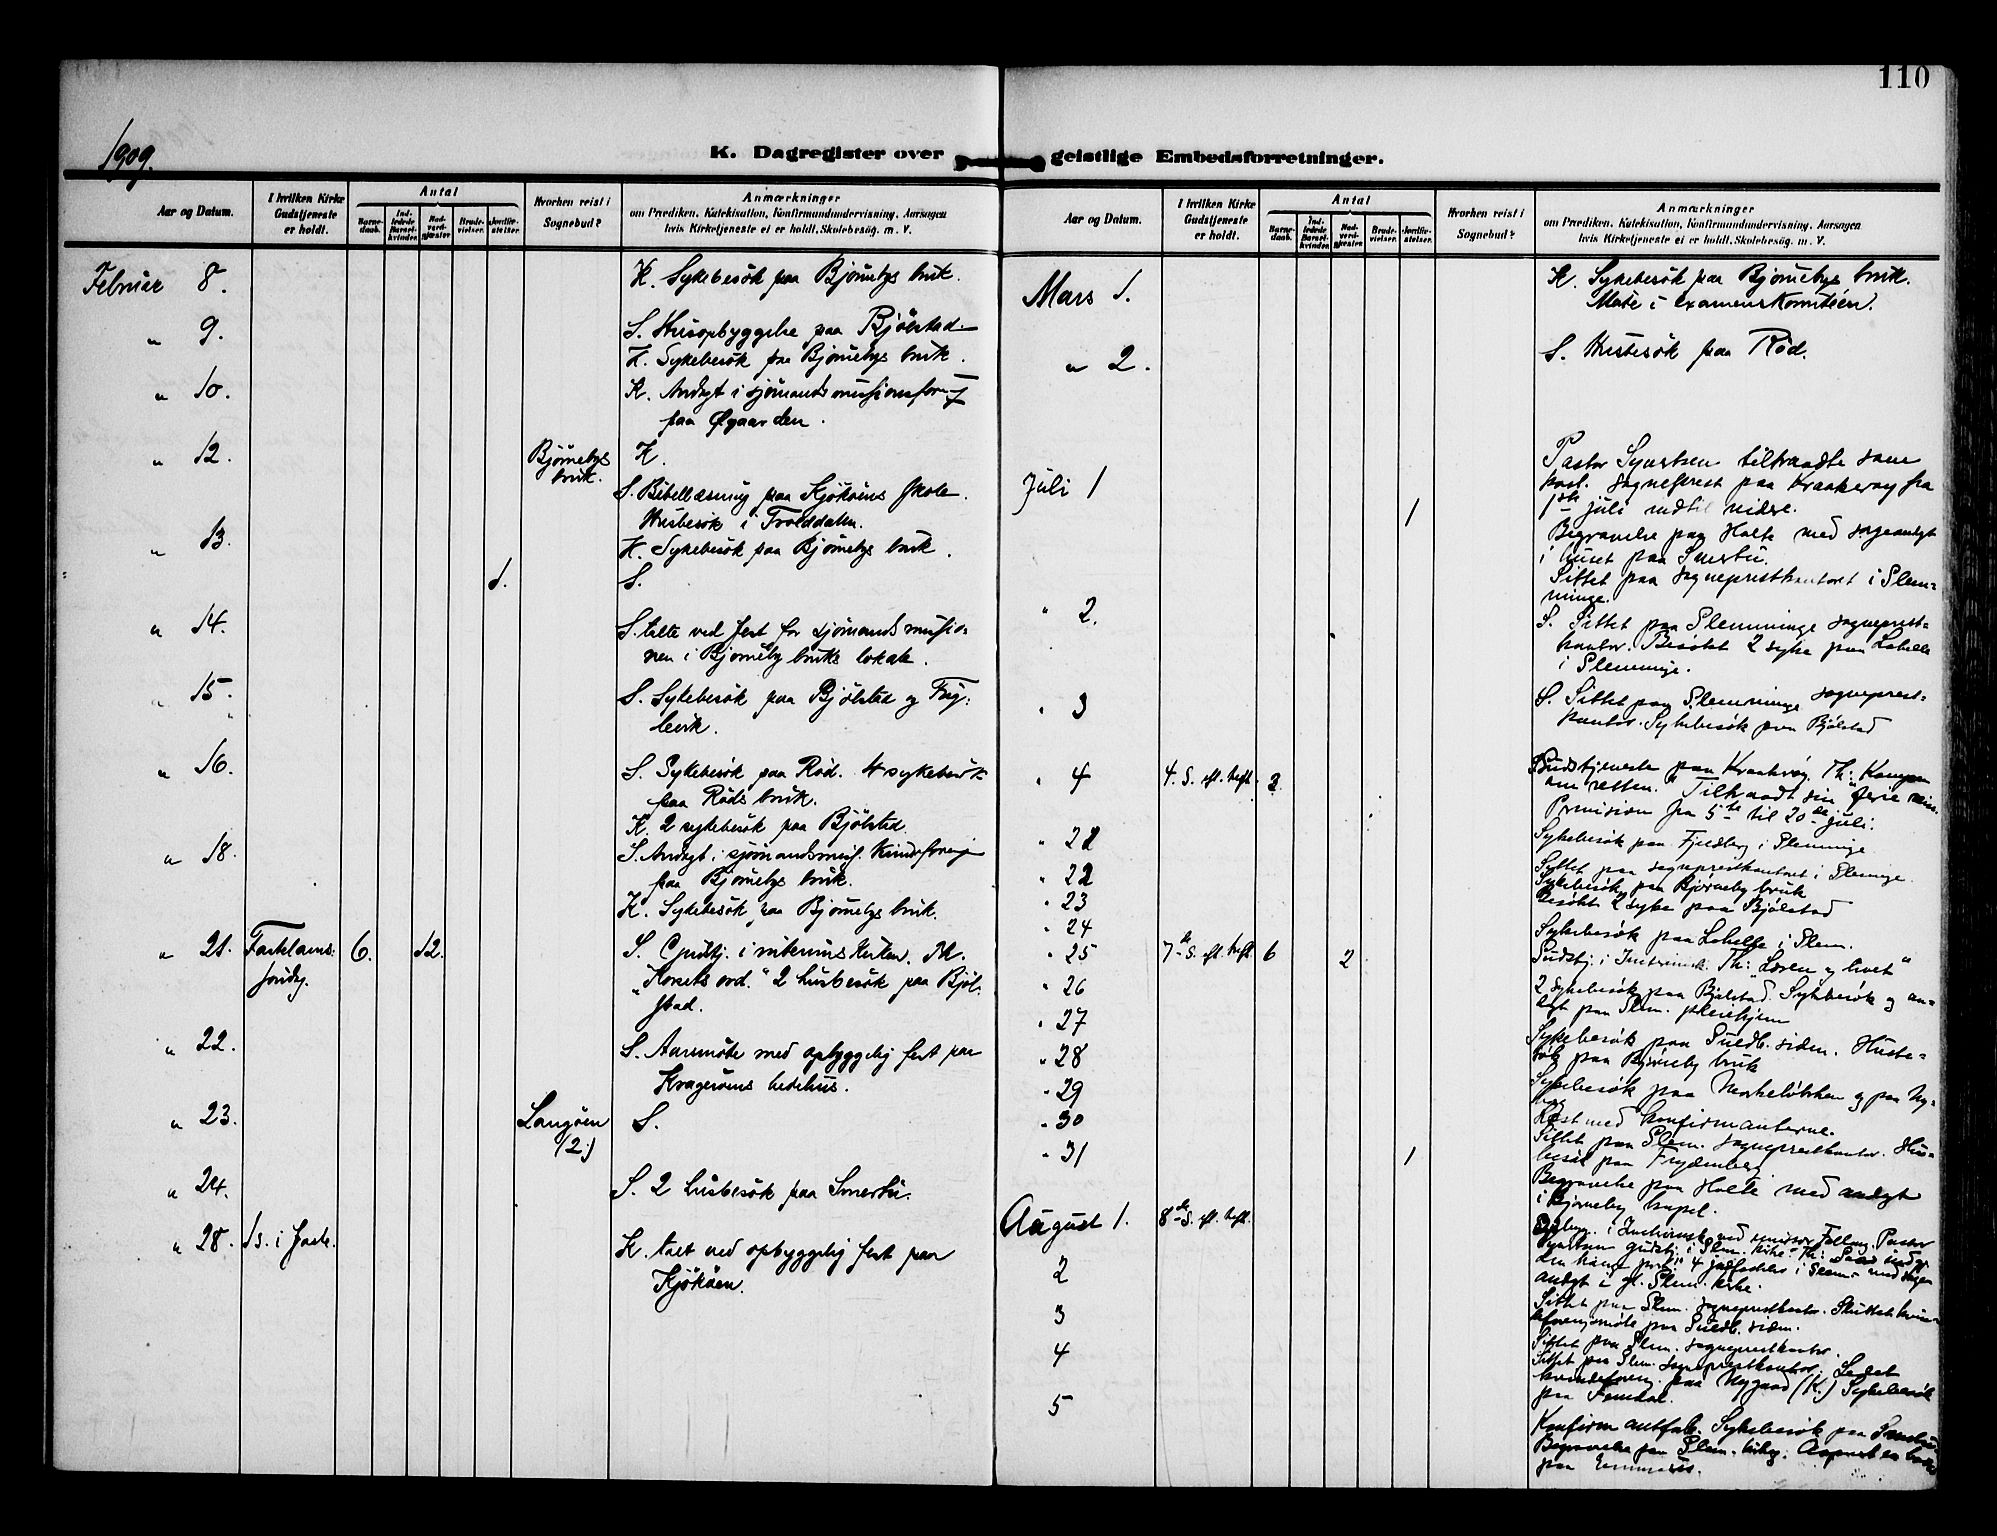 110
1909.
K. Dagregister over geistlige Embedsforretninger.
Aar og Datum.
I hvilken Kirke Gudstjeneste er holdt.
Antal
Barne-daab.
Ind-ledede Barsel-kvinder.
Nad-verd-gjæster.
Brude-vielser.
Jordfæ-stelser.
Hvorhen reist i Sognebud?
Anmærkninger
om Prædiken, Katekisation, Konfirmandundervisning, Aarsagen
hvis Kirketjeneste ei er holdt, Skolebesøg. m. V.
Februar 8. K. Sykebesök paa Bjørnebys bruk.
" 9. S. Husopbyggelse paa Bjölstad.
K. Sykebesök paa Bjørnebys bruk.
" 10. K. Andagt i sjømandsmissionsforen.
paa Øgaarden.
" 12. Bjørnebys bruk. K.
S. Bibellæsning paa Kjökøens skole.
Husbesök i Trolddalen.
" 13. K. Sykebesök paa Bjørnebys bruk.
1. S.
" 14. S. talte ved fest for sjømandsmissio-
nen i Bjørneby bruks lokale.
" 15. S. Sykebesök paa Bjölstad og Fug-
levik.
" 16. S. Sykebesök paa Röd. 4 sykebesök
paa Röds bruk.
K. 2 sykebesök paa Bjölstad.
" 18. S. Andagt i sjømandsmis. kvindeforening
paa Bjørnebys bruk.
K. Sykebesök paa Bjørnebys bruk.
" 21. Fastelavns-
söndag. 6. 12. S. Gudstj. i interimskirken. Th.
"Korsets ord." 2 husbesök paa Bjöl-
stad.
" 22. S. Aarsmöte med opbyggelig fest paa
Kragerøens bedehus.
" 23. Langøen
(2.) S.
" 24. S. 2 husbesök paa Smertu.
" 28. 1 s. i faste. K. talt ved opbyggelig fest paa
Kjökøen.
Aar og Datum.
I hvilken Kirke Gudstjeneste er holdt.
Antal
Barne-daab.
Ind-ledede Barsel-kvinder.
Nad-verd-gjæster.
Brude-vielser.
Jordfæ-stelser.
Hvorhen reist i Sognebud?
Anmærkninger
om Prædiken, Katekisation, Konfirmandundervisning, Aarsagen
hvis Kirketjeneste ei er holdt, Skolebesøg. m. V.
Mars 1. K. Sykebesök paa Bjørnebys bruk.
Möte i examenskomitéen.
" 2. S. Husbesök paa Röd.
Juli 1 Pastor Syvertsen tiltraadte som
kost. sogneprest paa Kraakerøy fra
1ste juli indtil videre.
1 Begravelse paa Holte med sørgeandagt
i huset paa Smertu.
Sittet paa sogneprestkontoret i Glem-
minge.
" 2. S. Sittet paa Glemminge sogneprest-
kontor. Besökt 2 syke paa Labella
i Glemminge.
" 3 S. Sittet paa Glemminge sogneprest-
kontor. Sykebesök paa Bjölstad
" 4 4. S. eft. trefl. 2. Gudstjeneste paa Kraakerøy. Th: "Kampen
om retten." Tiltraadt sin ferie
Permission fra 5te til 20de juli.
" 21 Sykebesök paa Fjeldberg i Glemminge
" 22 Sittet paa sogneprestkontoret i Glemminge.
" 23 Sykebesök paa Bjørneby bruk
Besökt 2 syke paa Bjölstad
" 24 Sykebesök paa Labella i Glem.
" 25 7de S. eft. trefl. 6 2 Gudstj. i Interimsk. Th: "Læren og livet"
" 26 2 sykebesök paa Bjölstad. Sykebesök og an-
dagt paa Glem. pleiehjem
" 27 Sykebesök paa Guldb. siden. Husbe-
sök paa Bjørneby bruk
" 28 Sykebesök paa
" 29 Læst med konfirmanterne.
" 30 Sittet paa Glem. sogneprestkontor. Hus-
besök paa Frydenberg
" 31 1 Begravelse paa Holte med andagt
i Bjørneby kapel.
August 1. 8de S. eft. trefl. Pastor
Syvertsen gudstj. i Glem. kirke. Th:
andagt i gl. Glem. kirke.
2 Sittet paa Glem. sogneprestkontor.
paa Guldb. siden.
3 Sittet paa Glem. sogneprestkontor.
4 Sittet paa Glem. sogneprestkontor. Ledet
kvindeforening paa Nygaard (K.) Sykebesök
paa
5 Sykebesök paa Smertu.
Begravelse paa Glem. kirkeg.
paa Emmaus.